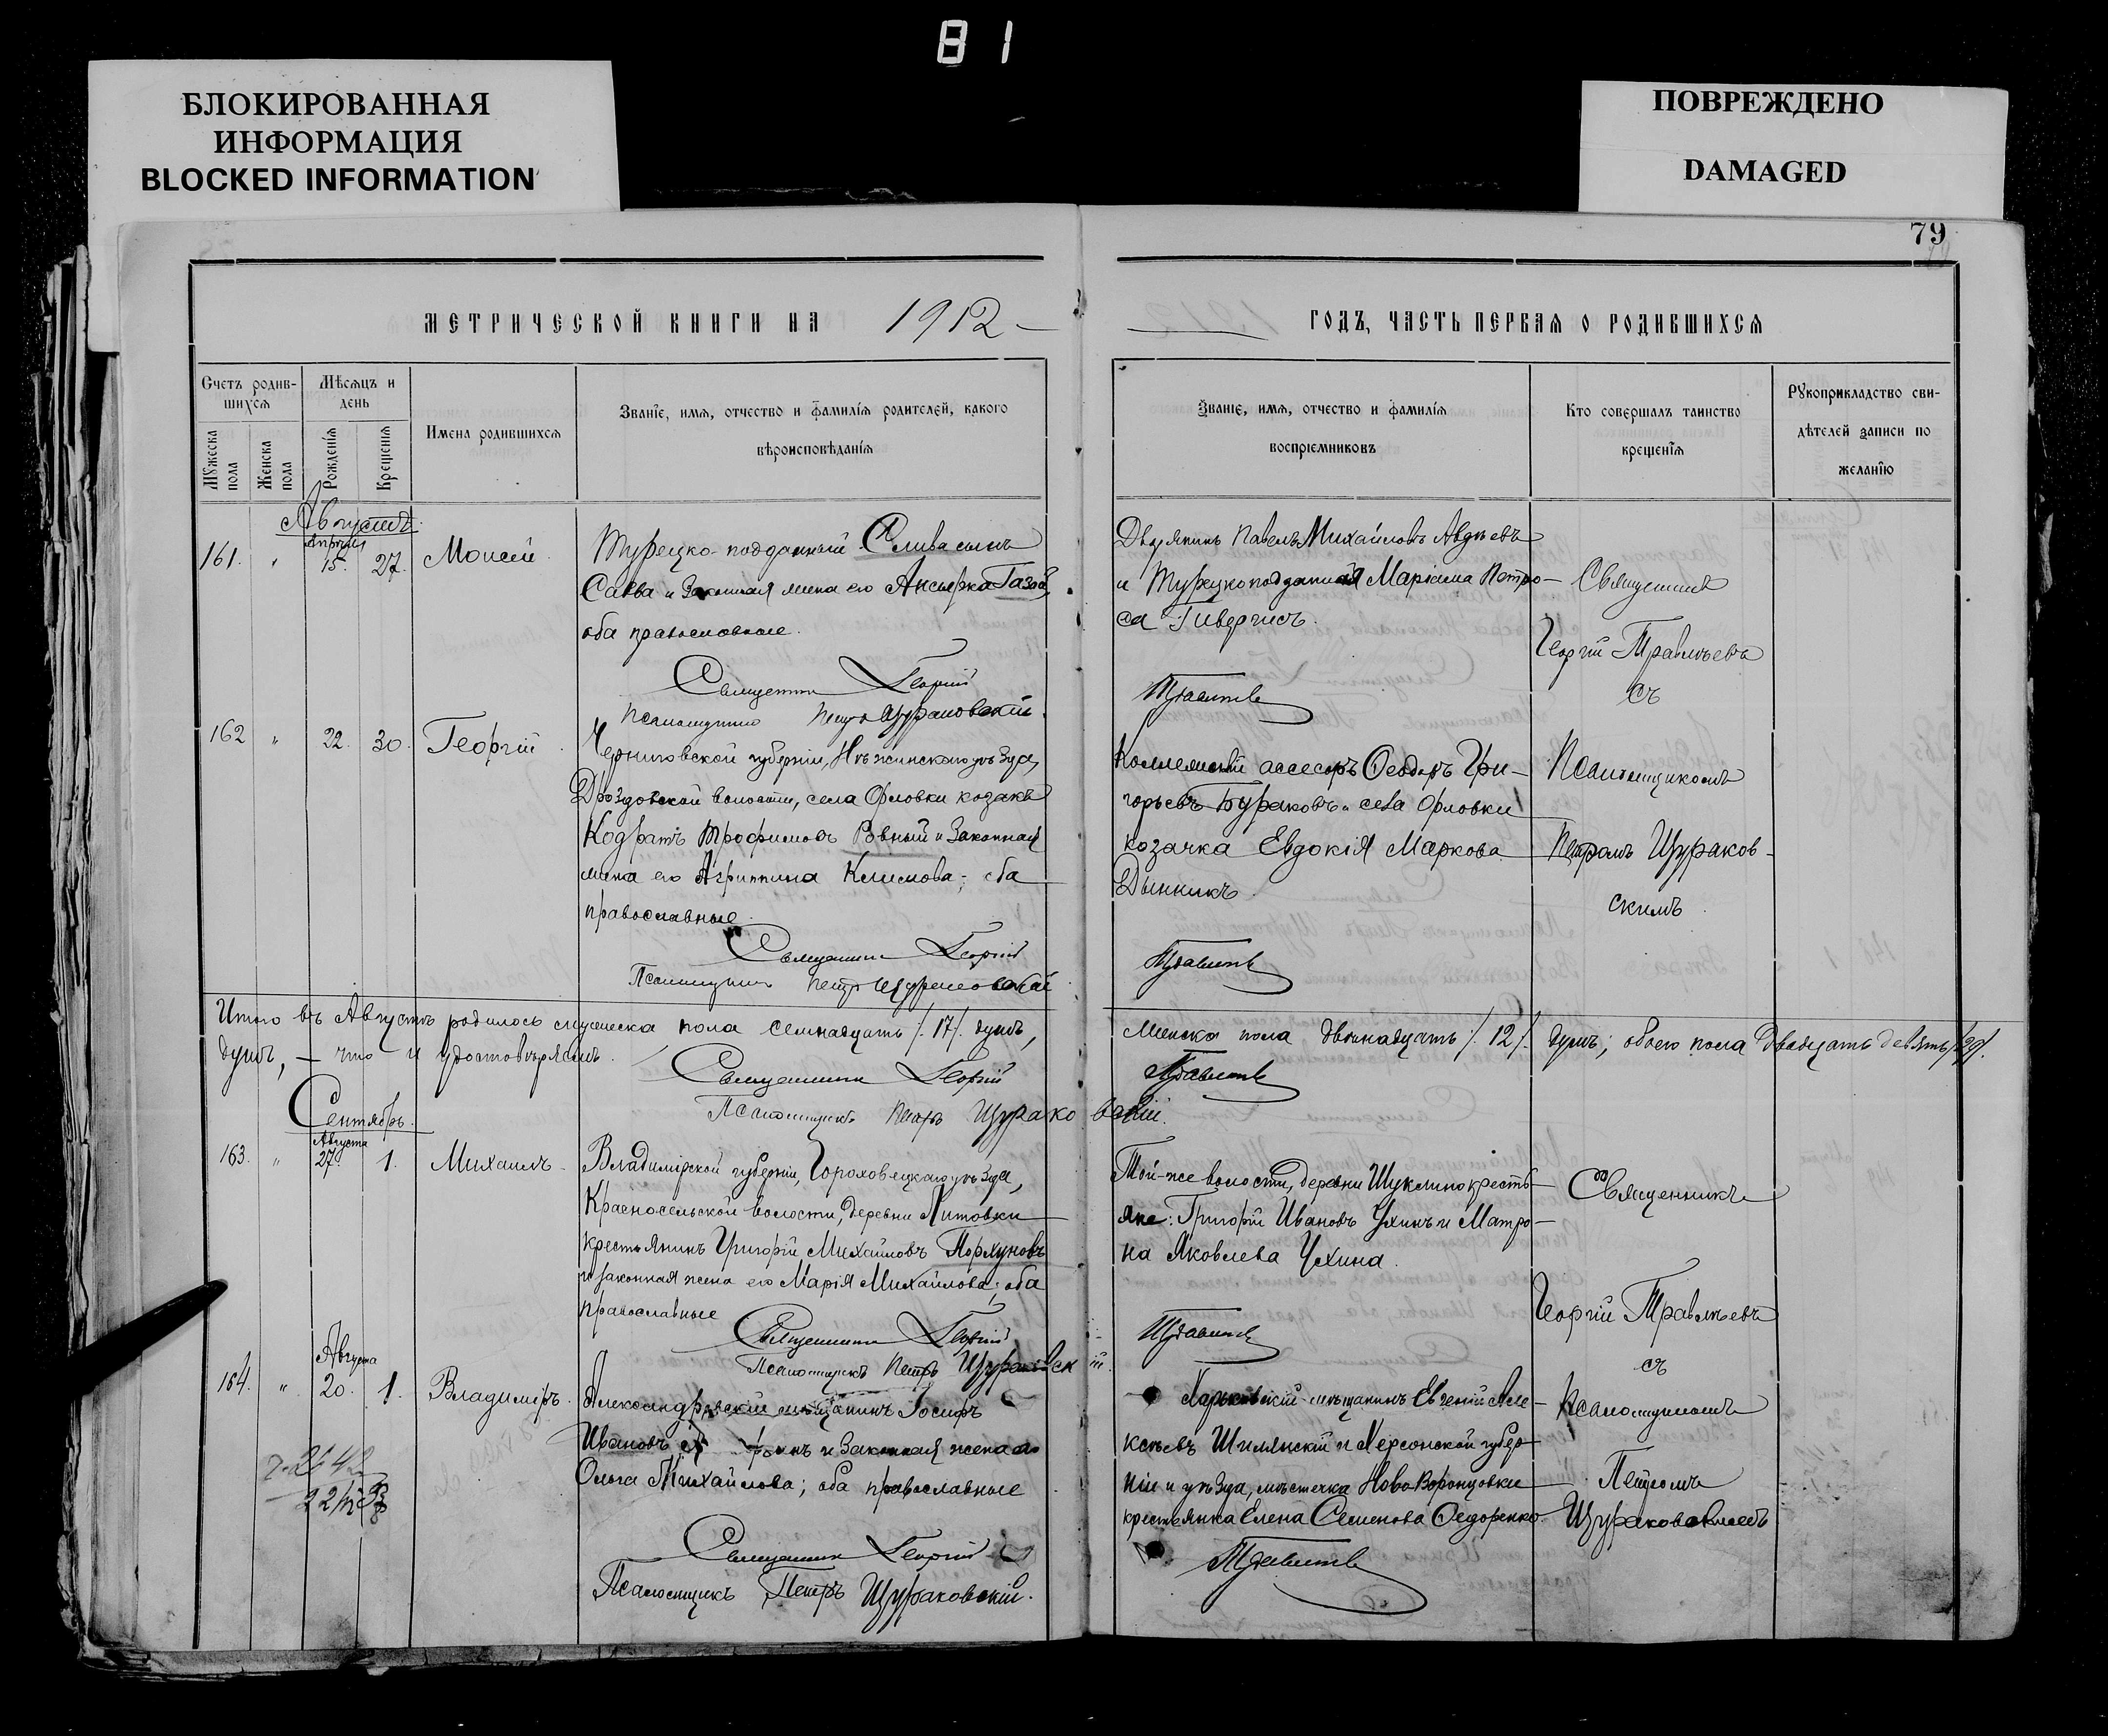 81
БЛОКИРОВАННАЯ
ИНФОРМАЦИЯ
BLOCKED INFORMATION
ПОВРЕЖДЕНО
DAMAGED
79
МЕТРИЧЕСКОЙ КНИГИ НА 1912
ГОДЪ, ЧАСТЬ ПЕРВАЯ О РОДИВШИХСЯ
Счетъ родив-
шихся
Мужеска пола
Женска пола
Мѣсяцъ и
день
Рожденія
Крещенія
Имена родившихся
Званіе, имя, отчество и фамилія родителей, какого
вѣроисповѣданія
Званіе, имя, отчество и фамилія
воспріемниковъ
Кто совершалъ таинство
крещенія
Рукоприкладство сви-
дѣтелей записи по
желанію
Августъ
161. " Апрѣля 15. 27. Моисей
Турецко-подданный
Савва и законная жена его
оба православные.
Священникъ Георгій
Псаломщикъ Петръ Щураковскій.
Дворянинъ Павелъ Михайловъ Авдѣевъ
и Турецкоподданная Маріама Петро-
Священникъ
Георгій Травлѣевъ
съ
162 " 22. 30. Георгій
Черниговской губерніи, Нѣжинскаго уѣзда,
Дроздовской волости, села Орловки козакъ
Кодратъ Трофимовъ Ровный и законная
жена его Агриппина Климова; оба
православные.
Священникъ Георгій
Псаломщикъ Петръ Щураковскій
Коллежскій ассесоръ Ѳеодоръ Гри-
горьевъ Бураковъ и села Орловки
козачка Евдокія Маркова
Дынникъ.
Псаломщикомъ
Петромъ Щураков-
скимъ.
Итого въ Августѣ родилось мужеска пола семнадцать /.17/. душъ,
женска пола двѣнадцать /.12/. душъ; обоего пола двадцать девять /29/.
душъ, — что и удостовѣряемъ.
Священникъ Георгій
Псаломщикъ Петръ Щураковскій.
Сентябрь.
163. " Августа 27. 1. Михаилъ
Владимірской губерніи, Гороховецкаго уѣзда,
Красносельской волости, деревни Литовки
крестьянинъ Григорій Михайловъ Порхуновъ
и законная жена его Марія Михайлова; оба
православные
Священникъ Георгій
Псаломщикъ Петръ Щураковскій.
Той-же волости, деревни Шуклино кресть-
яне: Григорій Ивановъ Ухинъ и Матро-
на Яковлева Ухина.
Священникъ
Георгій Травлѣевъ
съ
164. " Августа 20. 1. Владиміръ.
Александровскій мѣщанинъ Іосифъ
Ивановъ
и законная жена его
Ольга Михайлова; оба православные
Священникъ Георгій
Псаломщикъ Петръ Щураковскій.
Харьковскій мѣщанинъ Евгеній Але-
ксѣевъ Шилянскій и Херсонской губер-
ніи и уѣзда, мѣстечка Ново-Воронцовки
крестьянка Елена Семенова Ѳедоренко.
Псаломщикомъ
Петромъ
Щураковскимъ